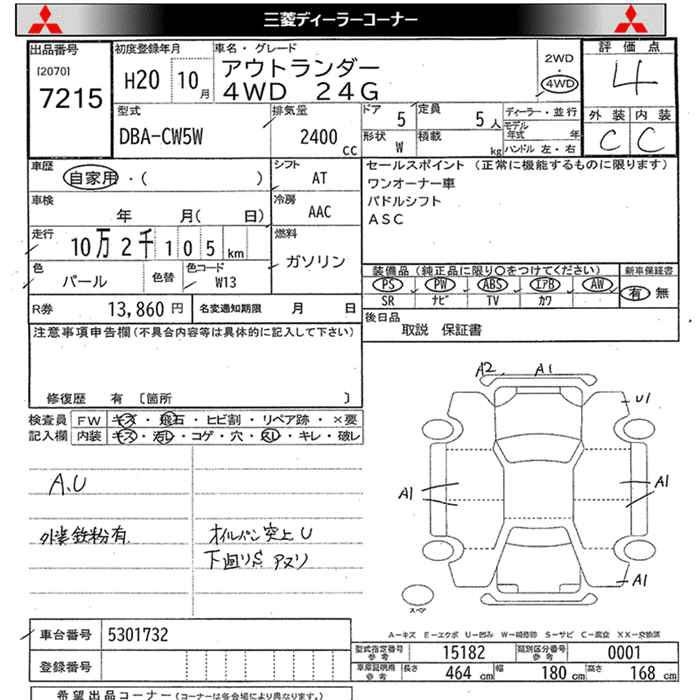 三菱ディーラーコーナー
出品番号
[2070]
7215
初度登録年月
H20 10月
車名・グレード
アウトランダー
4WD 24G
2WD
・
4WD
評価点
4
外装 内装
C C
型式
DBA-CW5W
排気量
2400 cc
ドア 5
定員 5人
形状 W
積載 kg
ディーラー・並行
モデル年式 年
ハンドル 左・右
車歴
自家用・( )
シフト AT
車検
年 月( 日)
冷房 AAC
走行
10万2千105km
燃料
ガソリン
色 パール
色替
色コード W13
セールスポイント (正常に機能するものに限ります)
ワンオーナー車
パドルシフト
ASC
装備品(純正品に限り○をつけてください)
新車保証書
PS PW ABS エアB AW
SR ナビ TV カワ
有 無
R券 13,860 円
名変通知期限 月 日
後日品
取説 保証書
注意事項申告欄(不具合内容等は具体的に記入して下さい)
修復歴 有 〔箇所 〕
検査員記入欄
FW キズ・飛石・ヒビ割・リペア跡・×要
内装 キズ・汚レ・コゲ・穴・スレ・キレ・破レ
A2 A1
U1
A1
A1
A1
スペア
A.U
外装鉄粉有
オイルパン突上U
下廻りS アヌリ
A-キズ E-エクボ U-凹み W-補修跡 S-サビ C-腐食 XX-交換済
車台番号 5301732
登録番号
型式指定番号 参考 15182
類別区分番号 参考 0001
車庫証明用 参考
長さ 464 cm
幅 180 cm
高さ 168 cm
希望出品コーナー(コーナーは各会場により異なります。)